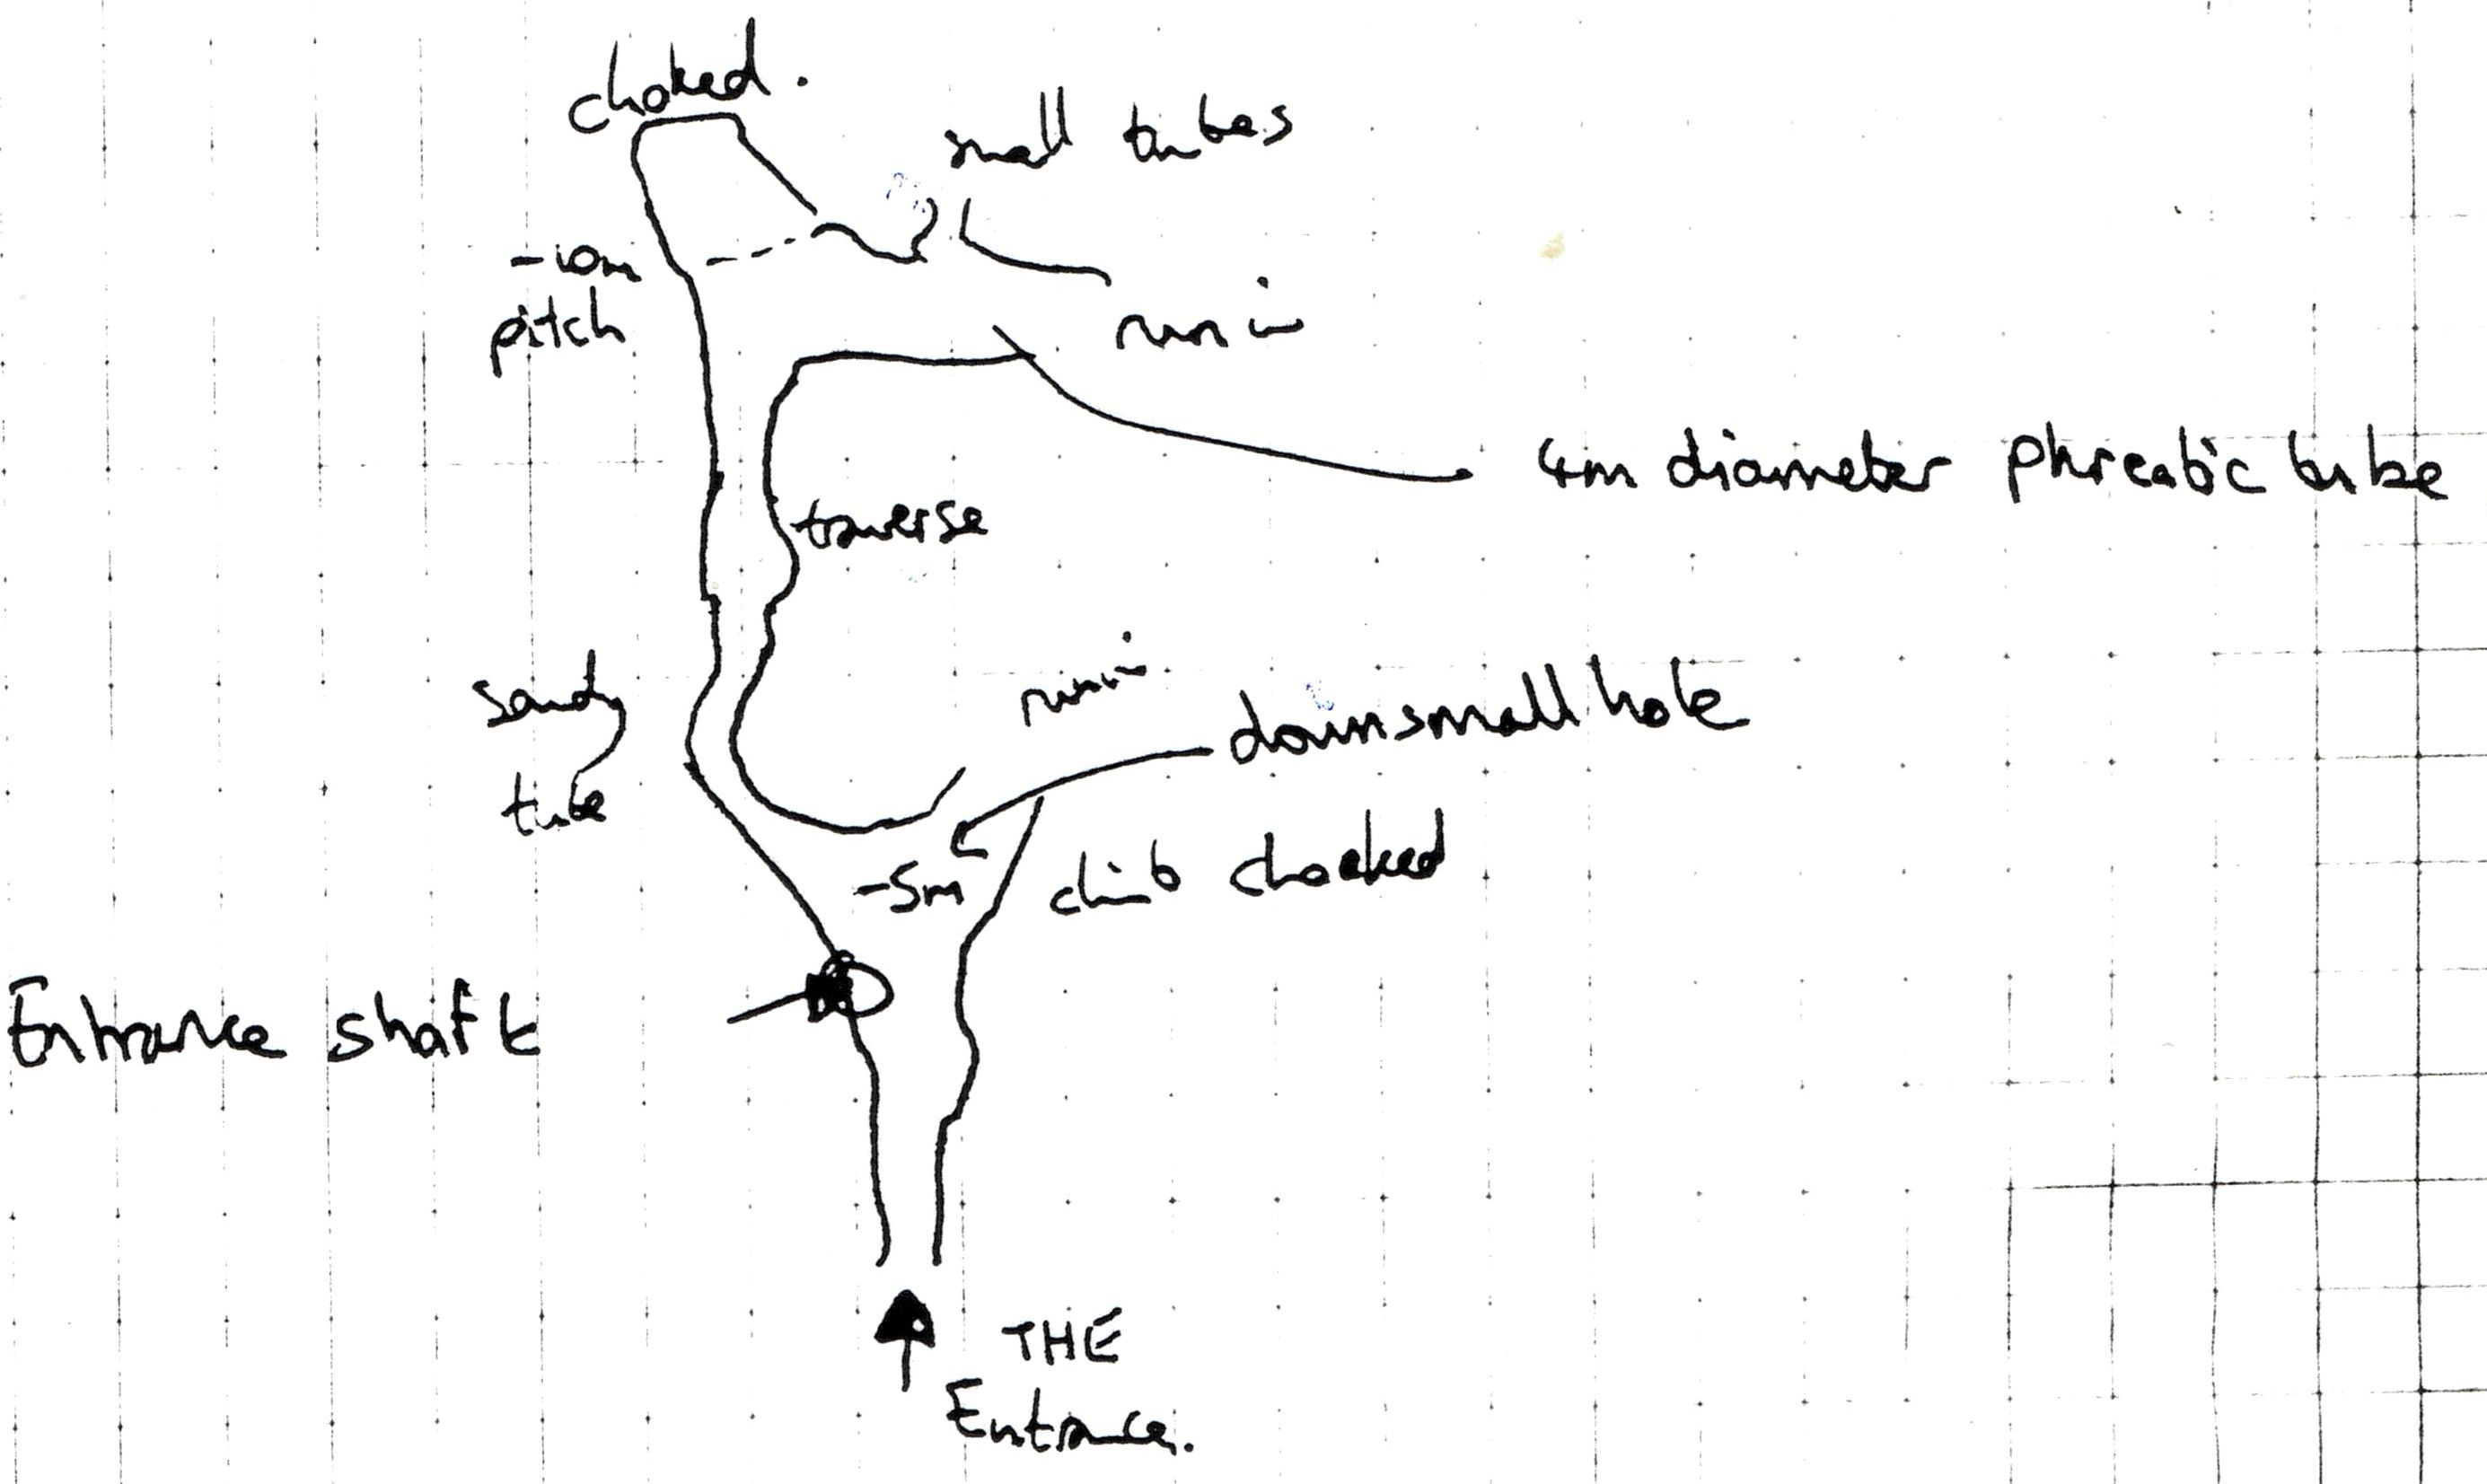 choked.
small tubes
-10m
pitch
run in
4m diameter phreatic tube
traverse
sandy
tube
run in
down small hole
-5m
climb choked
Entrance shaft
THE
Entrance.